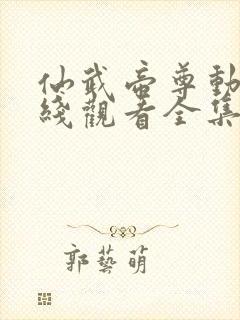 仙武帝尊動
綫觀看全集
郭藝萌